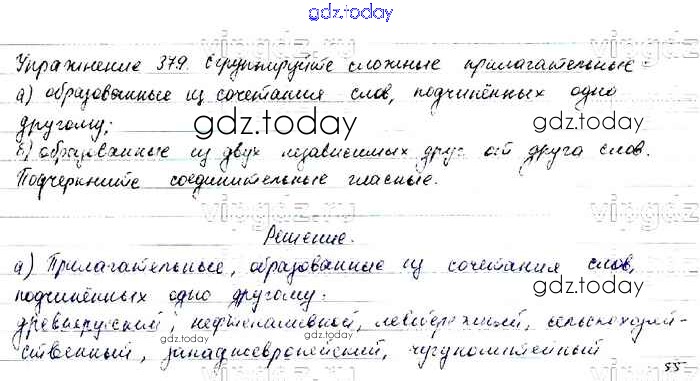 gdz.today
Упражнение 379. Сгруппируйте сложные прилагательные:
а) образованные из сочетания слов, подчинённых одно
другому;
gdz.today
gdz.today
б) образованные из двух независимых друг от друга слов.
Подчеркните соединительные гласные.
Решение.
а) Прилагательные, образованные из сочетания слов,
подчинённых одно другому:
gdz.today
gdz.today
древнерусский, нефтеналивной, левобережный, сельскохозяй-
ственный, западноевропейский, чугунолитейный
55